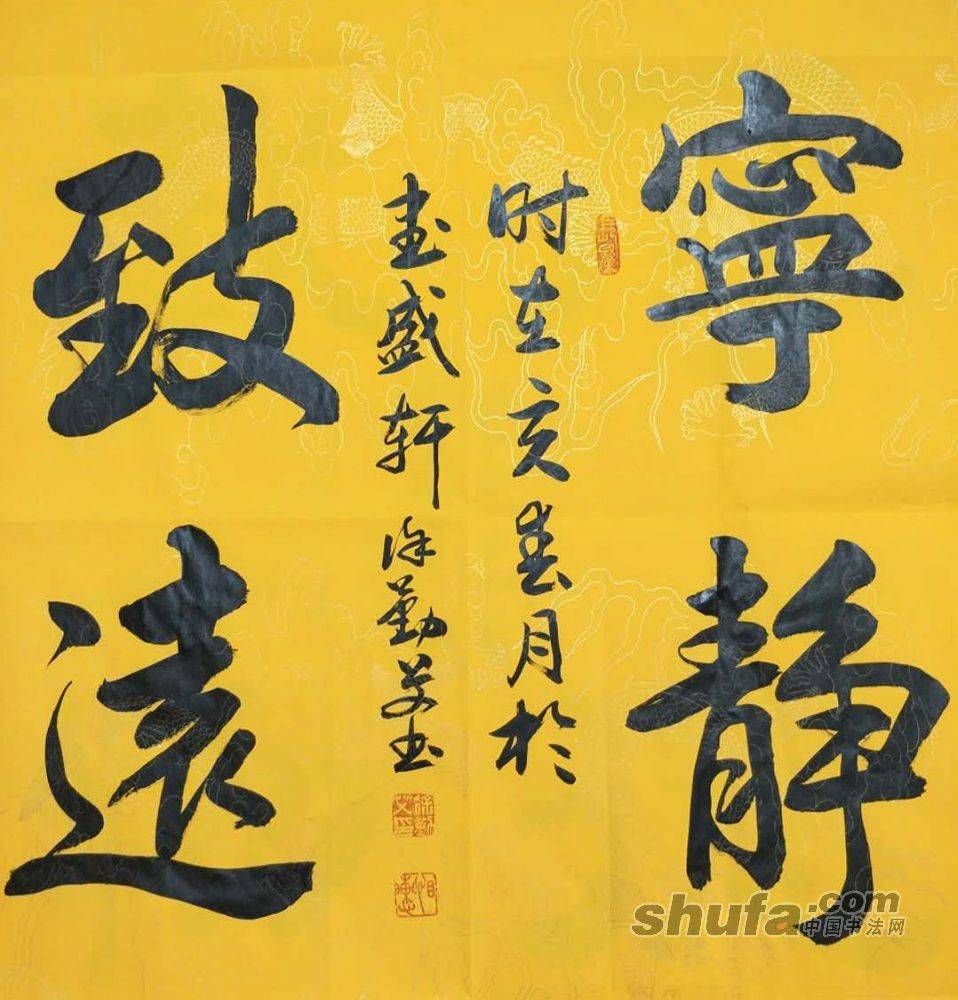 寧靜
致遠
时在亥春月於
书盛轩徐勤艾书
shufa.com
中国书法网